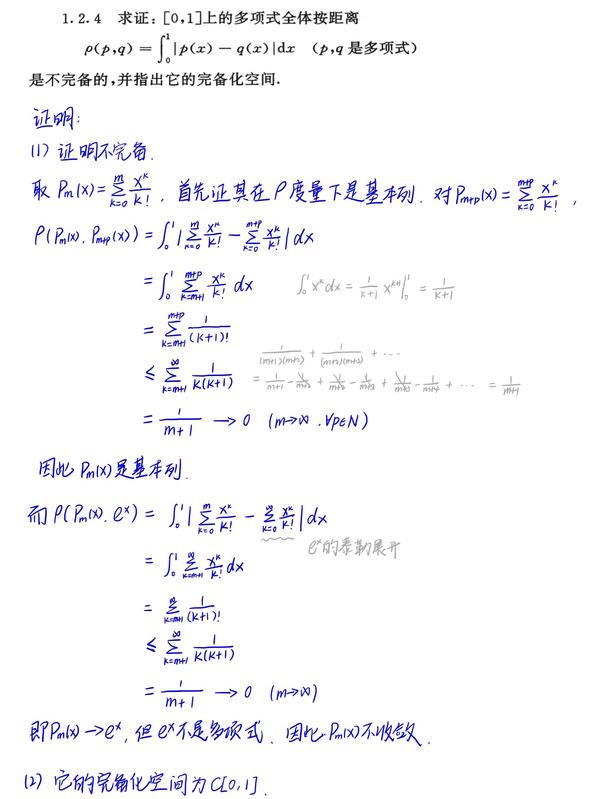 1.2.4 求证：[0,1]上的多项式全体按距离
ρ(p,q) = ∫₀¹ |p(x) − q(x)|dx (p,q 是多项式)
是不完备的,并指出它的完备化空间.
证明:
(1) 证明不完备.
取 Pₘ(x) = ∑_{k=0}^{m} x^k/k! , 首先证其在 ρ 度量下是基本列. 对 Pₘ₊ₚ(x) = ∑_{k=0}^{m+p} x^k/k! ,
ρ(Pₘ(x), Pₘ₊ₚ(x)) = ∫₀¹ |∑_{k=0}^{m} x^k/k! − ∑_{k=0}^{m+p} x^k/k!| dx
= ∫₀¹ ∑_{k=m+1}^{m+p} x^k/k! dx ∫₀¹ x^k dx = 1/(k+1) x^{k+1}|₀¹ = 1/(k+1)
= ∑_{k=m+1}^{m+p} 1/(k+1)!
≤ ∑_{k=m+1}^{∞} 1/(k(k+1)) 1/((m+1)(m+2)) + 1/((m+2)(m+3)) + ⋯
= 1/(m+1) − 1/(m+2) + 1/(m+2) − 1/(m+3) + 1/(m+3) − 1/(m+4) + ⋯ = 1/(m+1)
= 1/(m+1) → 0 (m→∞, ∀p∈N)
因此 Pₘ(x) 是基本列.
而 ρ(Pₘ(x), e^x) = ∫₀¹ |∑_{k=0}^{m} x^k/k! − ∑_{k=0}^{∞} x^k/k!| dx
e^x的泰勒展开
= ∫₀¹ ∑_{k=m+1}^{∞} x^k/k! dx
= ∑_{k=m+1}^{∞} 1/(k+1)!
≤ ∑_{k=m+1}^{∞} 1/(k(k+1))
= 1/(m+1) → 0 (m→∞)
即 Pₘ(x) → e^x, 但 e^x 不是多项式. 因此 Pₘ(x) 不收敛.
(2) 它的完备化空间为 C[0,1].